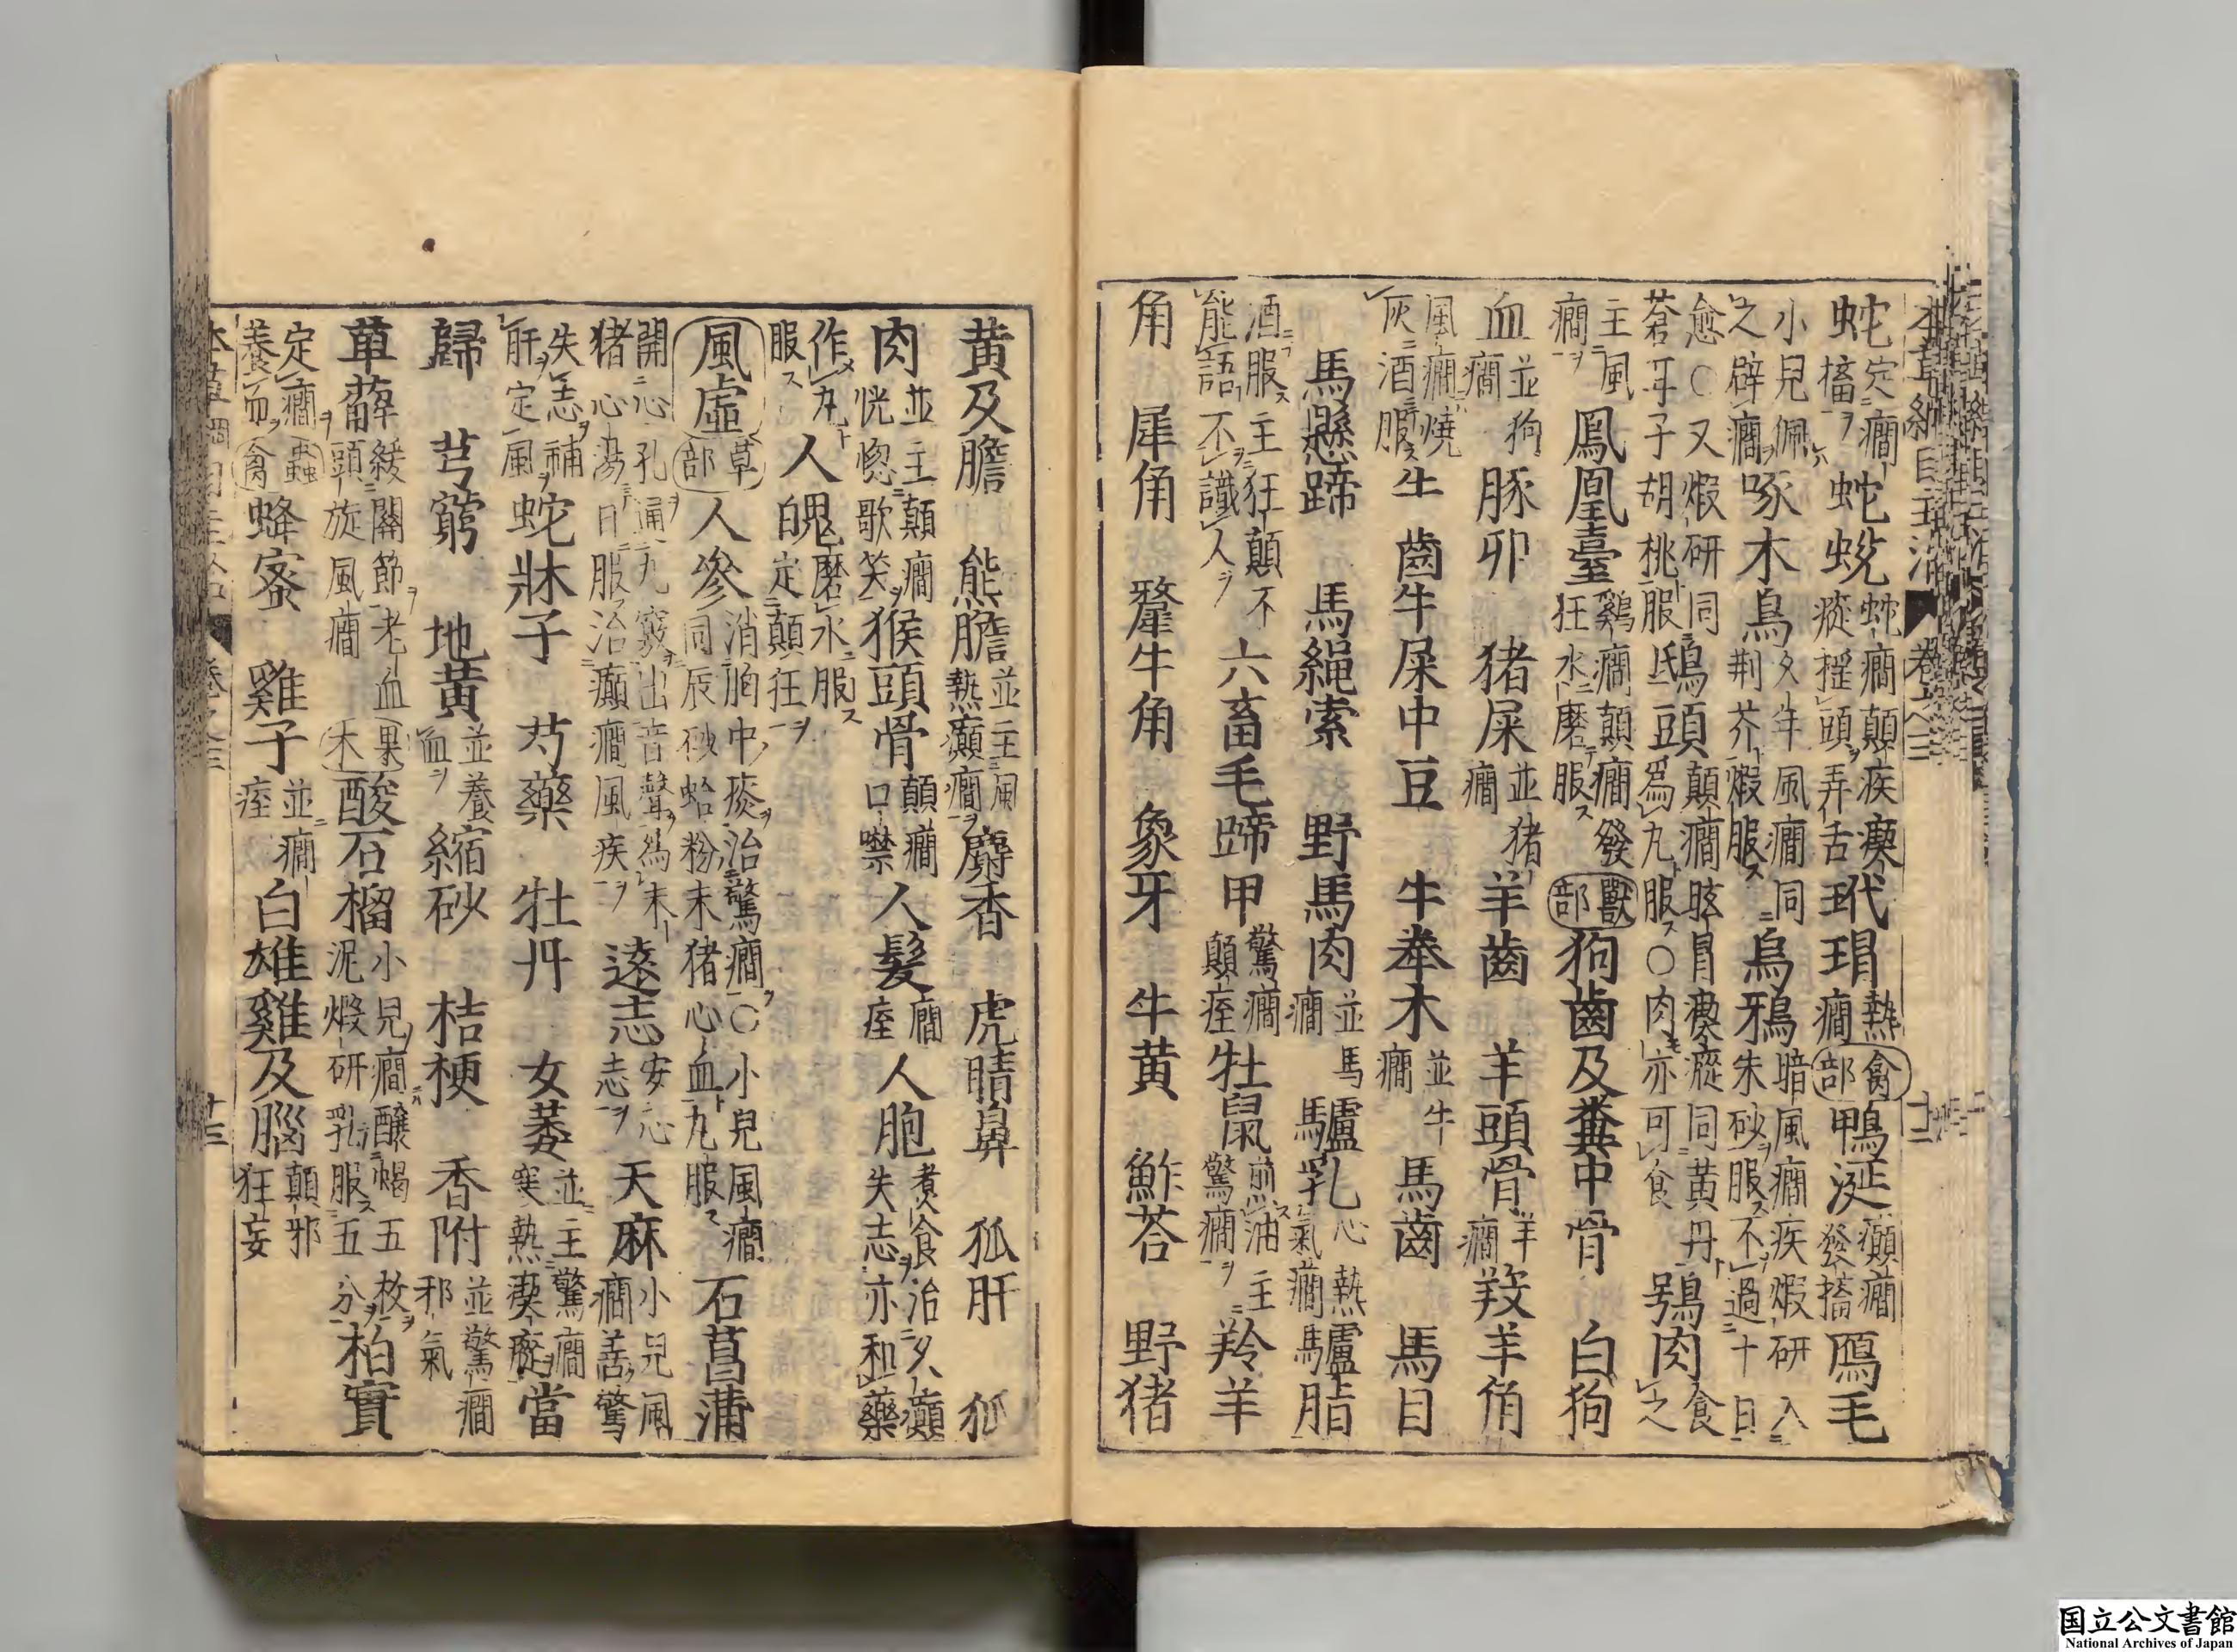 蛇 定癇搐 蛇蛻 蛇癇顛疾瘈瘲搖頭弄舌 玳瑁 熱癇 禽部 鴨涎 癲癇發搐 鴈毛
小兒佩之辟癇 啄木鳥 久年風癇同荆芥煅服 烏鴉 暗風癇疾煅研入朱砂服不過十日
愈○又煅研同蒼耳子胡桃服 鴟頭 顛癇眩冒瘈瘲同黃丹爲丸服○肉亦可食 鴞肉 食之
主風癇 鳳凰臺 鷄癇顛癇發狂水磨服 獸部 狗齒及糞中骨 白狗
血 並狗癇 豚卵 猪屎 並猪癇 羊齒 羊頭骨 羊癇 羖羊角
風癇燒灰酒服 牛齒 牛屎中豆 牛拳木 並牛癇 馬齒 馬目
馬懸蹄 馬繩索 野馬肉 並馬癇 驢乳 心熱氣癇 驢脂
酒服主狂顛不能語不識人 六畜毛蹄甲 驚癇顛痓 牡鼠 煎油主驚癇 羚羊
角 犀角 犛牛角 象牙 牛黃 鮓荅 野猪
黃及膽 熊膽 並主風熱癲癇 麝香 虎睛鼻 狐肝 狐
肉 並主顛癇恍惚歌笑 猴頭骨 顛癇口噤 人髮 癇痓 人胞 煑食治久癲失志亦和藥
作丸服 人魄 磨水服定顛狂
風虛 草部 人參 消胸中痰治驚癇○小兒風癇同辰砂蛤粉末猪心血丸服 石菖蒲
開心孔通九竅出音聲爲末猪心湯日服治癲癇風疾 遠志 安心志 天麻 小兒風癇善驚
失志補肝定風 蛇牀子 芍藥 牡丹 女萎 並主驚癇寒熱瘈瘲 當
歸 芎藭 地黃 並養血 縮砂 桔梗 香附 並驚癇邪氣
萆薢 緩關節老血頭旋風癇 果木 酸石榴 小兒癇釀蝎五枚泥煅研乳服五分 柏實
定癇養血 蟲禽 蜂蜜 雞子 並癇痓 白雄雞及腦 顛邪狂妄
国立公文書館
National Archives of Japan